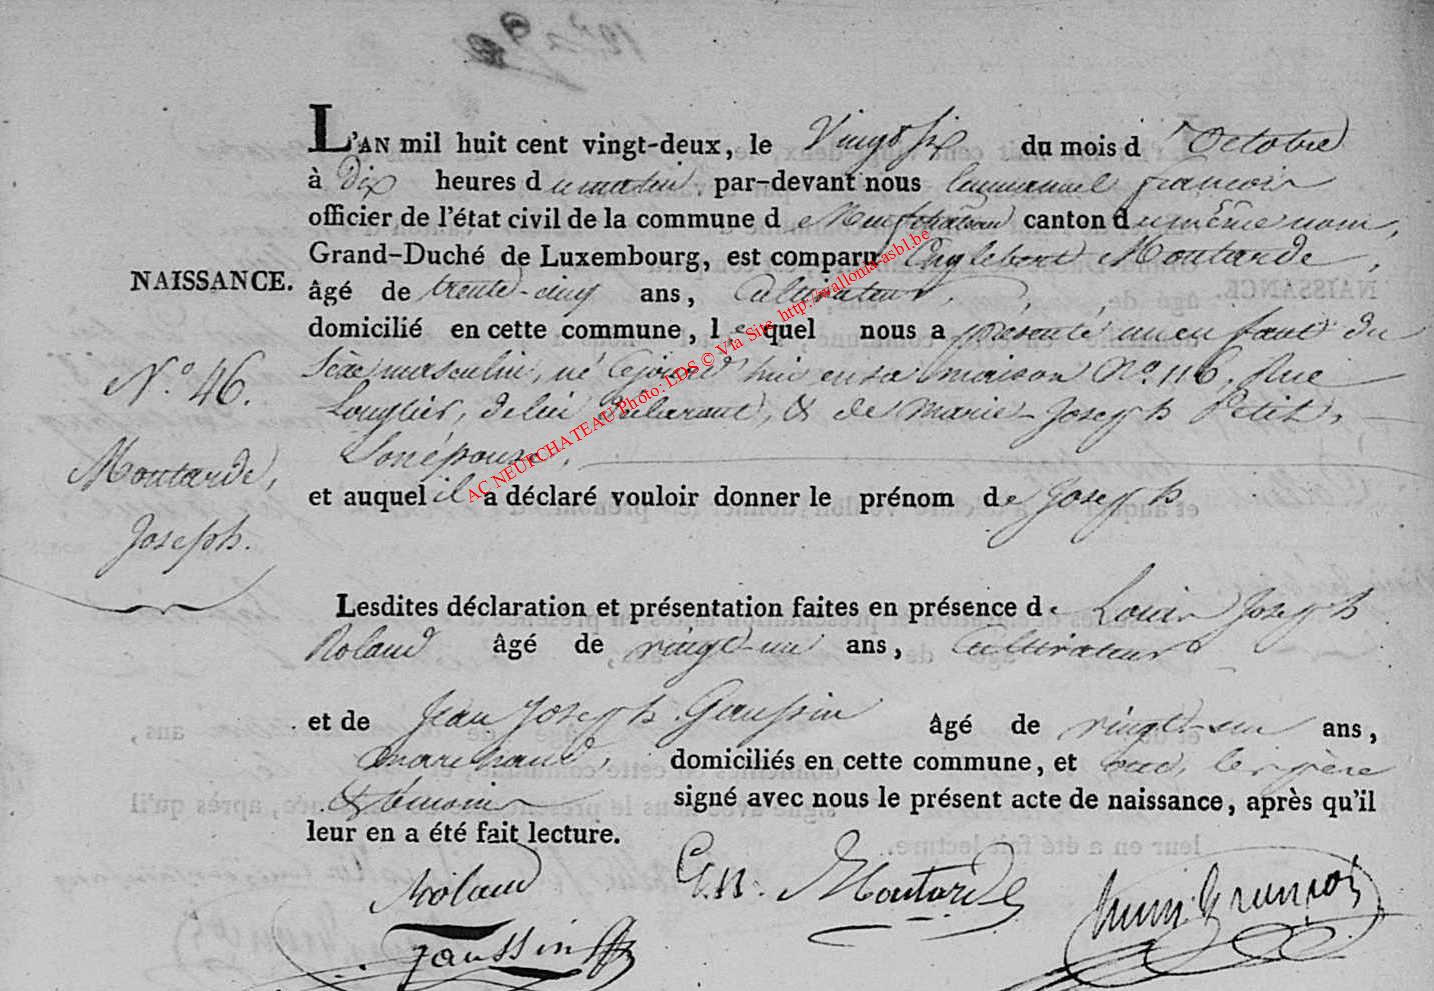 L'AN mil huit cent vingt-deux, le Vingt Six du mois d'Octobre
à Dix heures du matin, par-devant nous Emmanuel françois
officier de l'état civil de la commune de Neufchâteau canton du même nom,
Grand-Duché de Luxembourg, est comparu Englebert Moutarde,
NAISSANCE.
âgé de trente-cinq ans, Cultivateur,
domicilié en cette commune, lequel nous a présenté un enfant du
Sexe masculin, né cejourd'hui en sa maison No. 116, Rue
N.o 46.
Longlier, de lui Déclarant, & de Marie-Joseph Petit,
Son épouse,
Moutarde,
et auquel il a déclaré vouloir donner le prénom de Joseph
Joseph.
Lesdites déclaration et présentation faites en présence de Louis Joseph
Roland âgé de vingt-un ans, Cultivateur
et de Jean Joseph Gaussin âgé de vingt-un ans,
marchand, domiciliés en cette commune, et ont, les père
& témoins signé avec nous le présent acte de naissance, après qu'il
leur en a été fait lecture.
Roland
Moutarde
Gaussin
AC NEUFCHATEAU Photo: LDS © Via Site http://wallonia-asbl.be